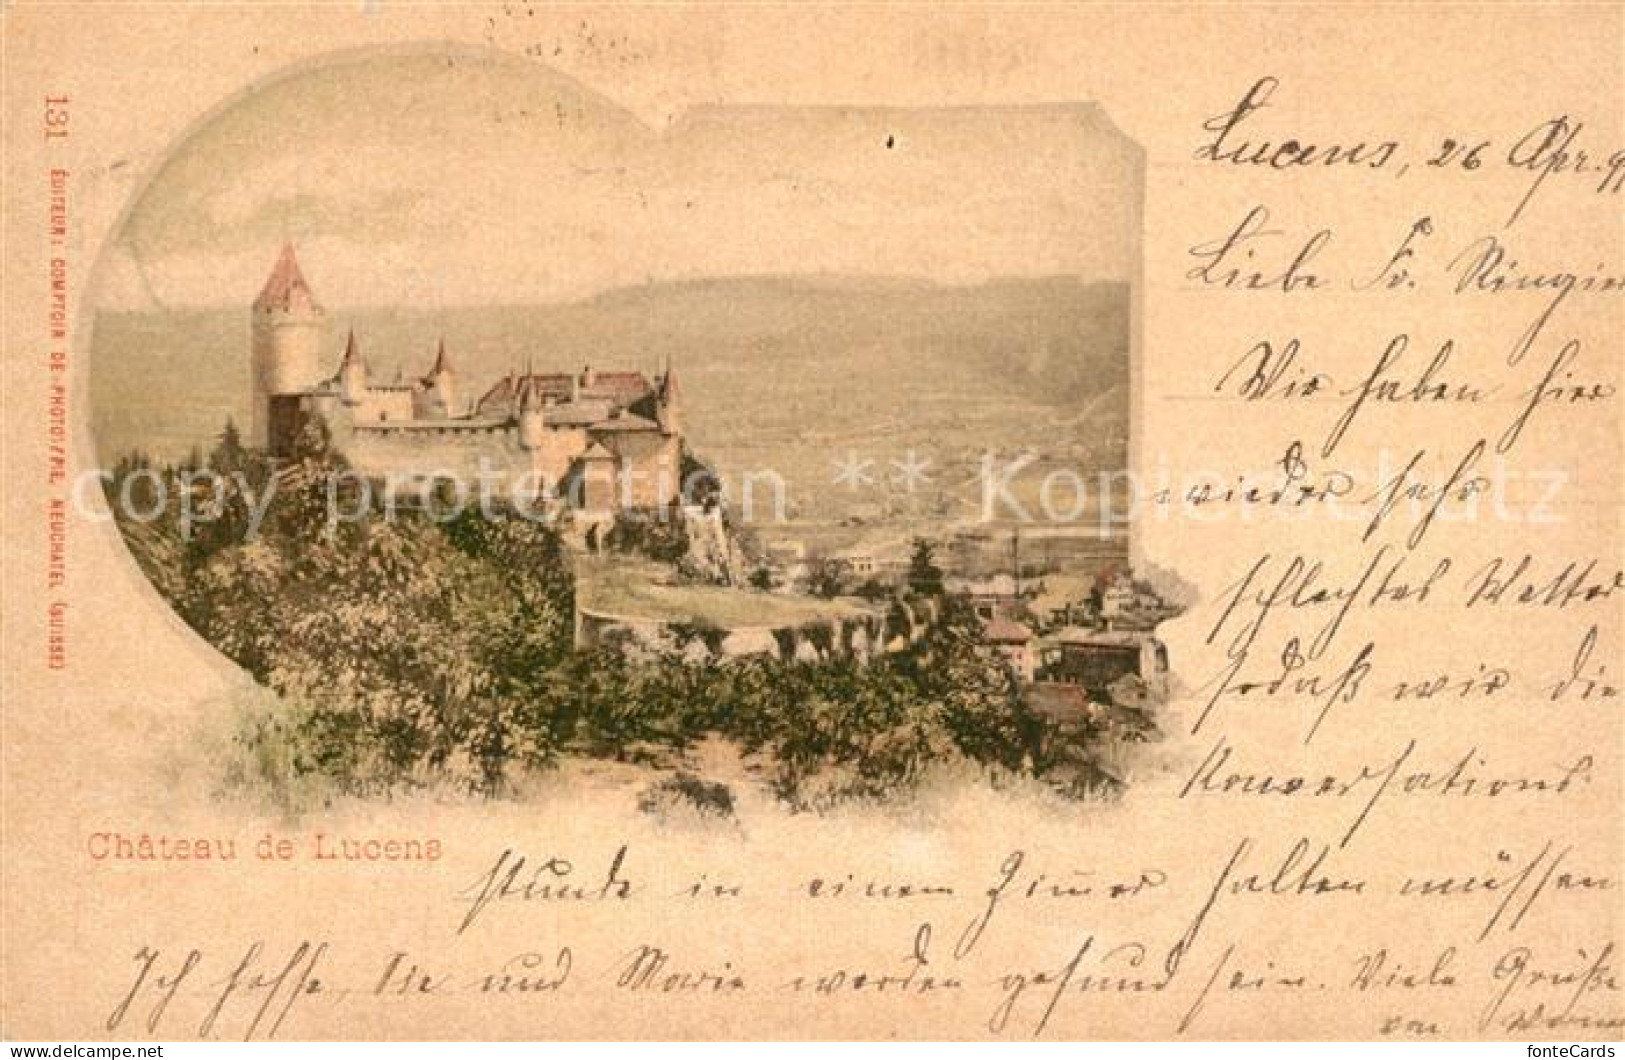 131 ÉDITEUR: COMPTOIR DE PHOTOTYPIE, NEUCHATEL (SUISSE)
Lucens, 26 Apr.
Liebe Fr. Ringier
Wir haben hier
wieder sehr
schlechtes Wetter
sodaß wir die
Konversations
Château de Lucens
stunde in einem Zimer halten müssen
Ich hoffe, Sie und Marie werden gesund sein. Viele Grüße
von
copy protection ** Kopierschutz
delcampe.net
fonteCards